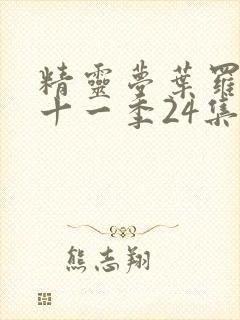 精靈夢葉羅
十一季24集
熊志翔